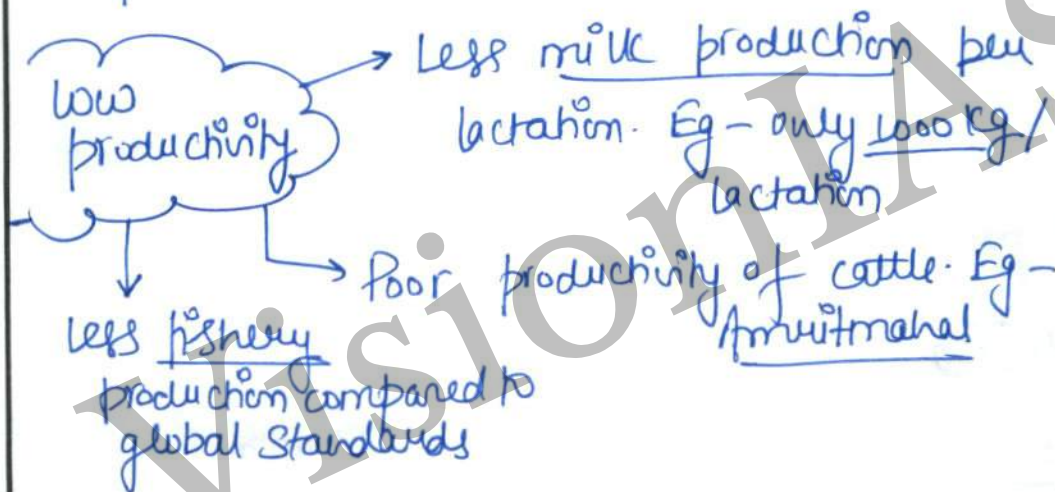 low
productivity
Less milk production per
lactation. Eg - only 1000 kg/
lactation
Poor productivity of cattle. Eg -
Amritmahal
less fishery
production compared to
global standards
VisionIAS